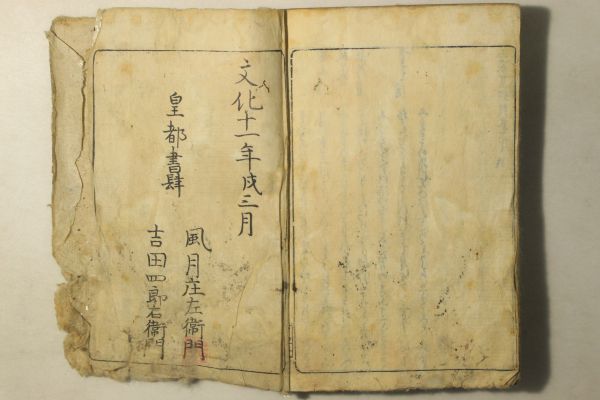 文化十一年戌三月
皇都書肆
風月庄左衛門
吉田四郎右衛門